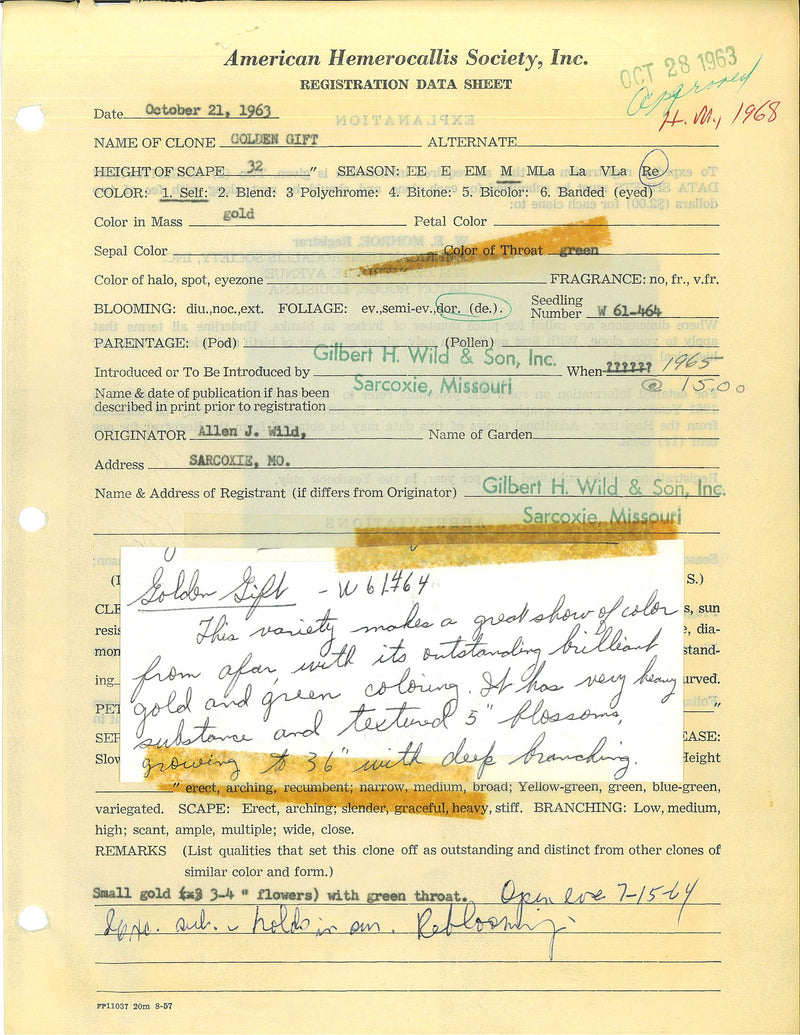 American Hemerocallis Society, Inc.
REGISTRATION DATA SHEET
OCT 28 1963
Approved
H. M., 1968
Date October 21, 1963
NAME OF CLONE GOLDEN GIFT ALTERNATE
HEIGHT OF SCAPE 32 " SEASON: EE E EM M MLa La VLa Re
COLOR: 1. Self: 2. Blend: 3 Polychrome: 4. Bitone: 5. Bicolor: 6. Banded (eyed)
Color in Mass gold Petal Color
Sepal Color Color of Throat green
Color of halo, spot, eyezone FRAGRANCE: no, fr., v.fr.
BLOOMING: diu.,noc.,ext. FOLIAGE: ev.,semi-ev.,dor. (de.). Seedling Number W 61-464
PARENTAGE: (Pod) (Pollen)
Gilbert H. Wild & Son, Inc.
Introduced or To Be Introduced by When ?????? 1965
Sarcoxie, Missouri @ 15.00
Name & date of publication if has been
described in print prior to registration
ORIGINATOR Allen J. Wild, Name of Garden
Address SARCOXIE, MO.
Name & Address of Registrant (if differs from Originator) Gilbert H. Wild & Son, Inc.
Sarcoxie, Missouri
Golden Gift - W 61464
This variety makes a great show of color
from afar, with its outstanding brilliant
gold and green coloring. It has very heavy
substance and textured 5" blossoms,
growing to 36" with deep branching.
(I S.)
CLE s, sun
resis e, dia-
mon stand-
ing urved.
PET "
SEP EASE:
Slov Height
" erect, arching, recumbent; narrow, medium, broad; Yellow-green, green, blue-green,
variegated. SCAPE: Erect, arching; slender, graceful, heavy, stiff. BRANCHING: Low, medium,
high; scant, ample, multiple; wide, close.
REMARKS (List qualities that set this clone off as outstanding and distinct from other clones of
similar color and form.)
Small gold 3-4 " flowers) with green throat. Open eve 7-15-64
sub. holds in sun. Reblooming
FP11037 20m 8-57